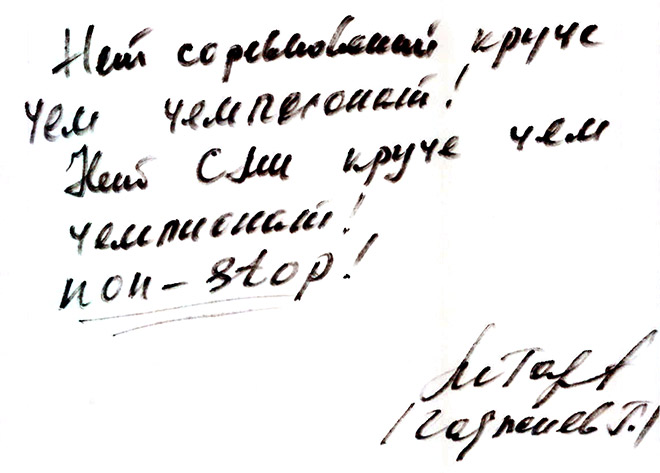 Нет соревнований круче
чем чемпионат!
Нет СМИ круче чем
чемпионат!
non-stop!